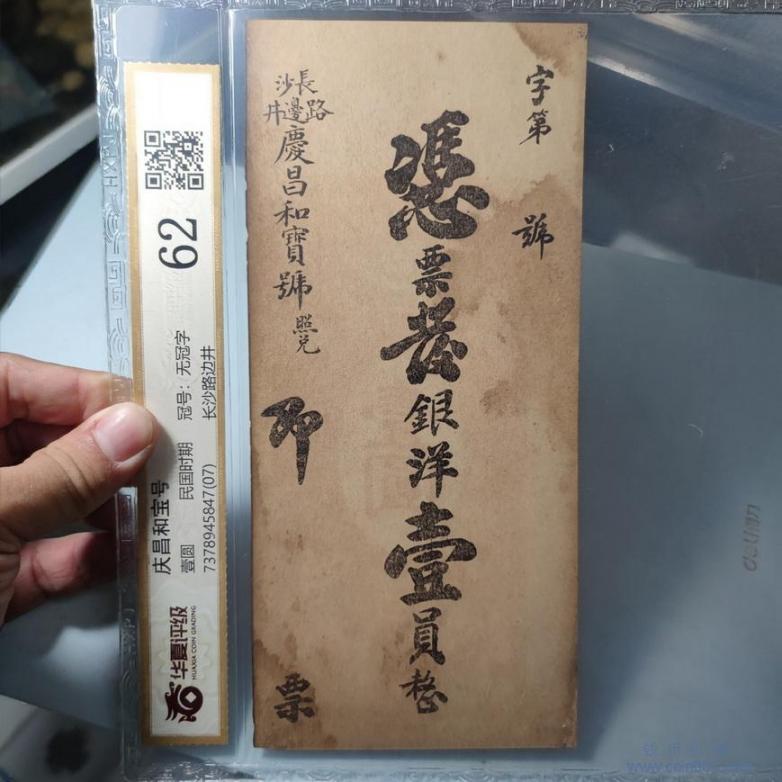 字第 號
憑票發銀洋壹員整
長沙
路邊井
慶昌和寶號照兑
即票
62
庆昌和宝号
壹圆 民国时期 冠号：无冠字
7378945847(07) 长沙路边井
华夏评级
HUAXIA COIN GRADING